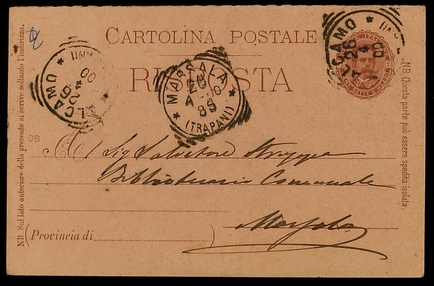 CARTOLINA POSTALE
RISPOSTA
ALCAMO
MARSALA
(TRAPANI)
ALCAMO
Al Sig Salvatore Struppa
Bibliotecario Comunale
Marsala
(Provincia di
NB Sul lato anteriore della presente si scrive soltanto l'indirizzo.
NB Questa parte può essere spedita isolata.